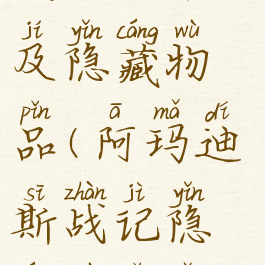 jí yǐn cáng wù
及隐藏物
pǐn ā mǎ dí
品(阿玛迪
sī zhàn jì yǐn
斯战记隐